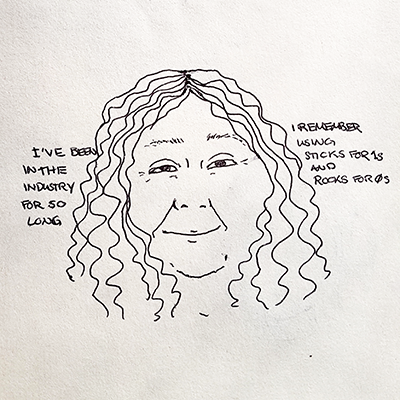 I'VE BEEN
IN THE
INDUSTRY
FOR SO
LONG
I REMEMBER
USING
STICKS FOR 1s
AND
ROCKS FOR 0s